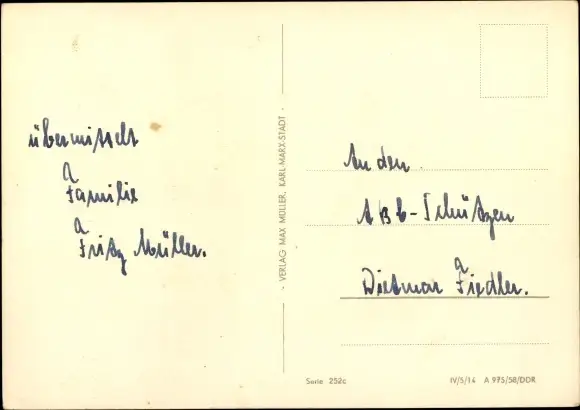 übermittelt
Familie
Fritz Müller.
- VERLAG MAX MÜLLER, KARL-MARX-STADT -
An den
ABC-Schützen
Dietmar Fiedler.
Serie 252c
IV/5/14 A 975/58/DDR